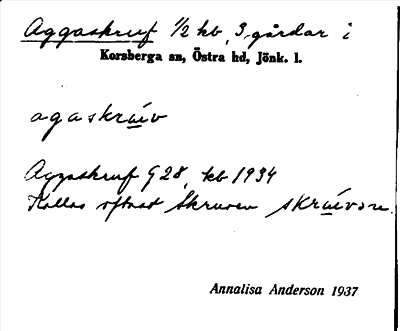 Aggaskruf ½ kb, 3 gårdar i
Korsberga sn, Östra hd, Jönk. l.
agaskrúev
Aggaskruf G 28, kb 1934
Kallas oftast Skruven skrúevən.
Annalisa Anderson 1937